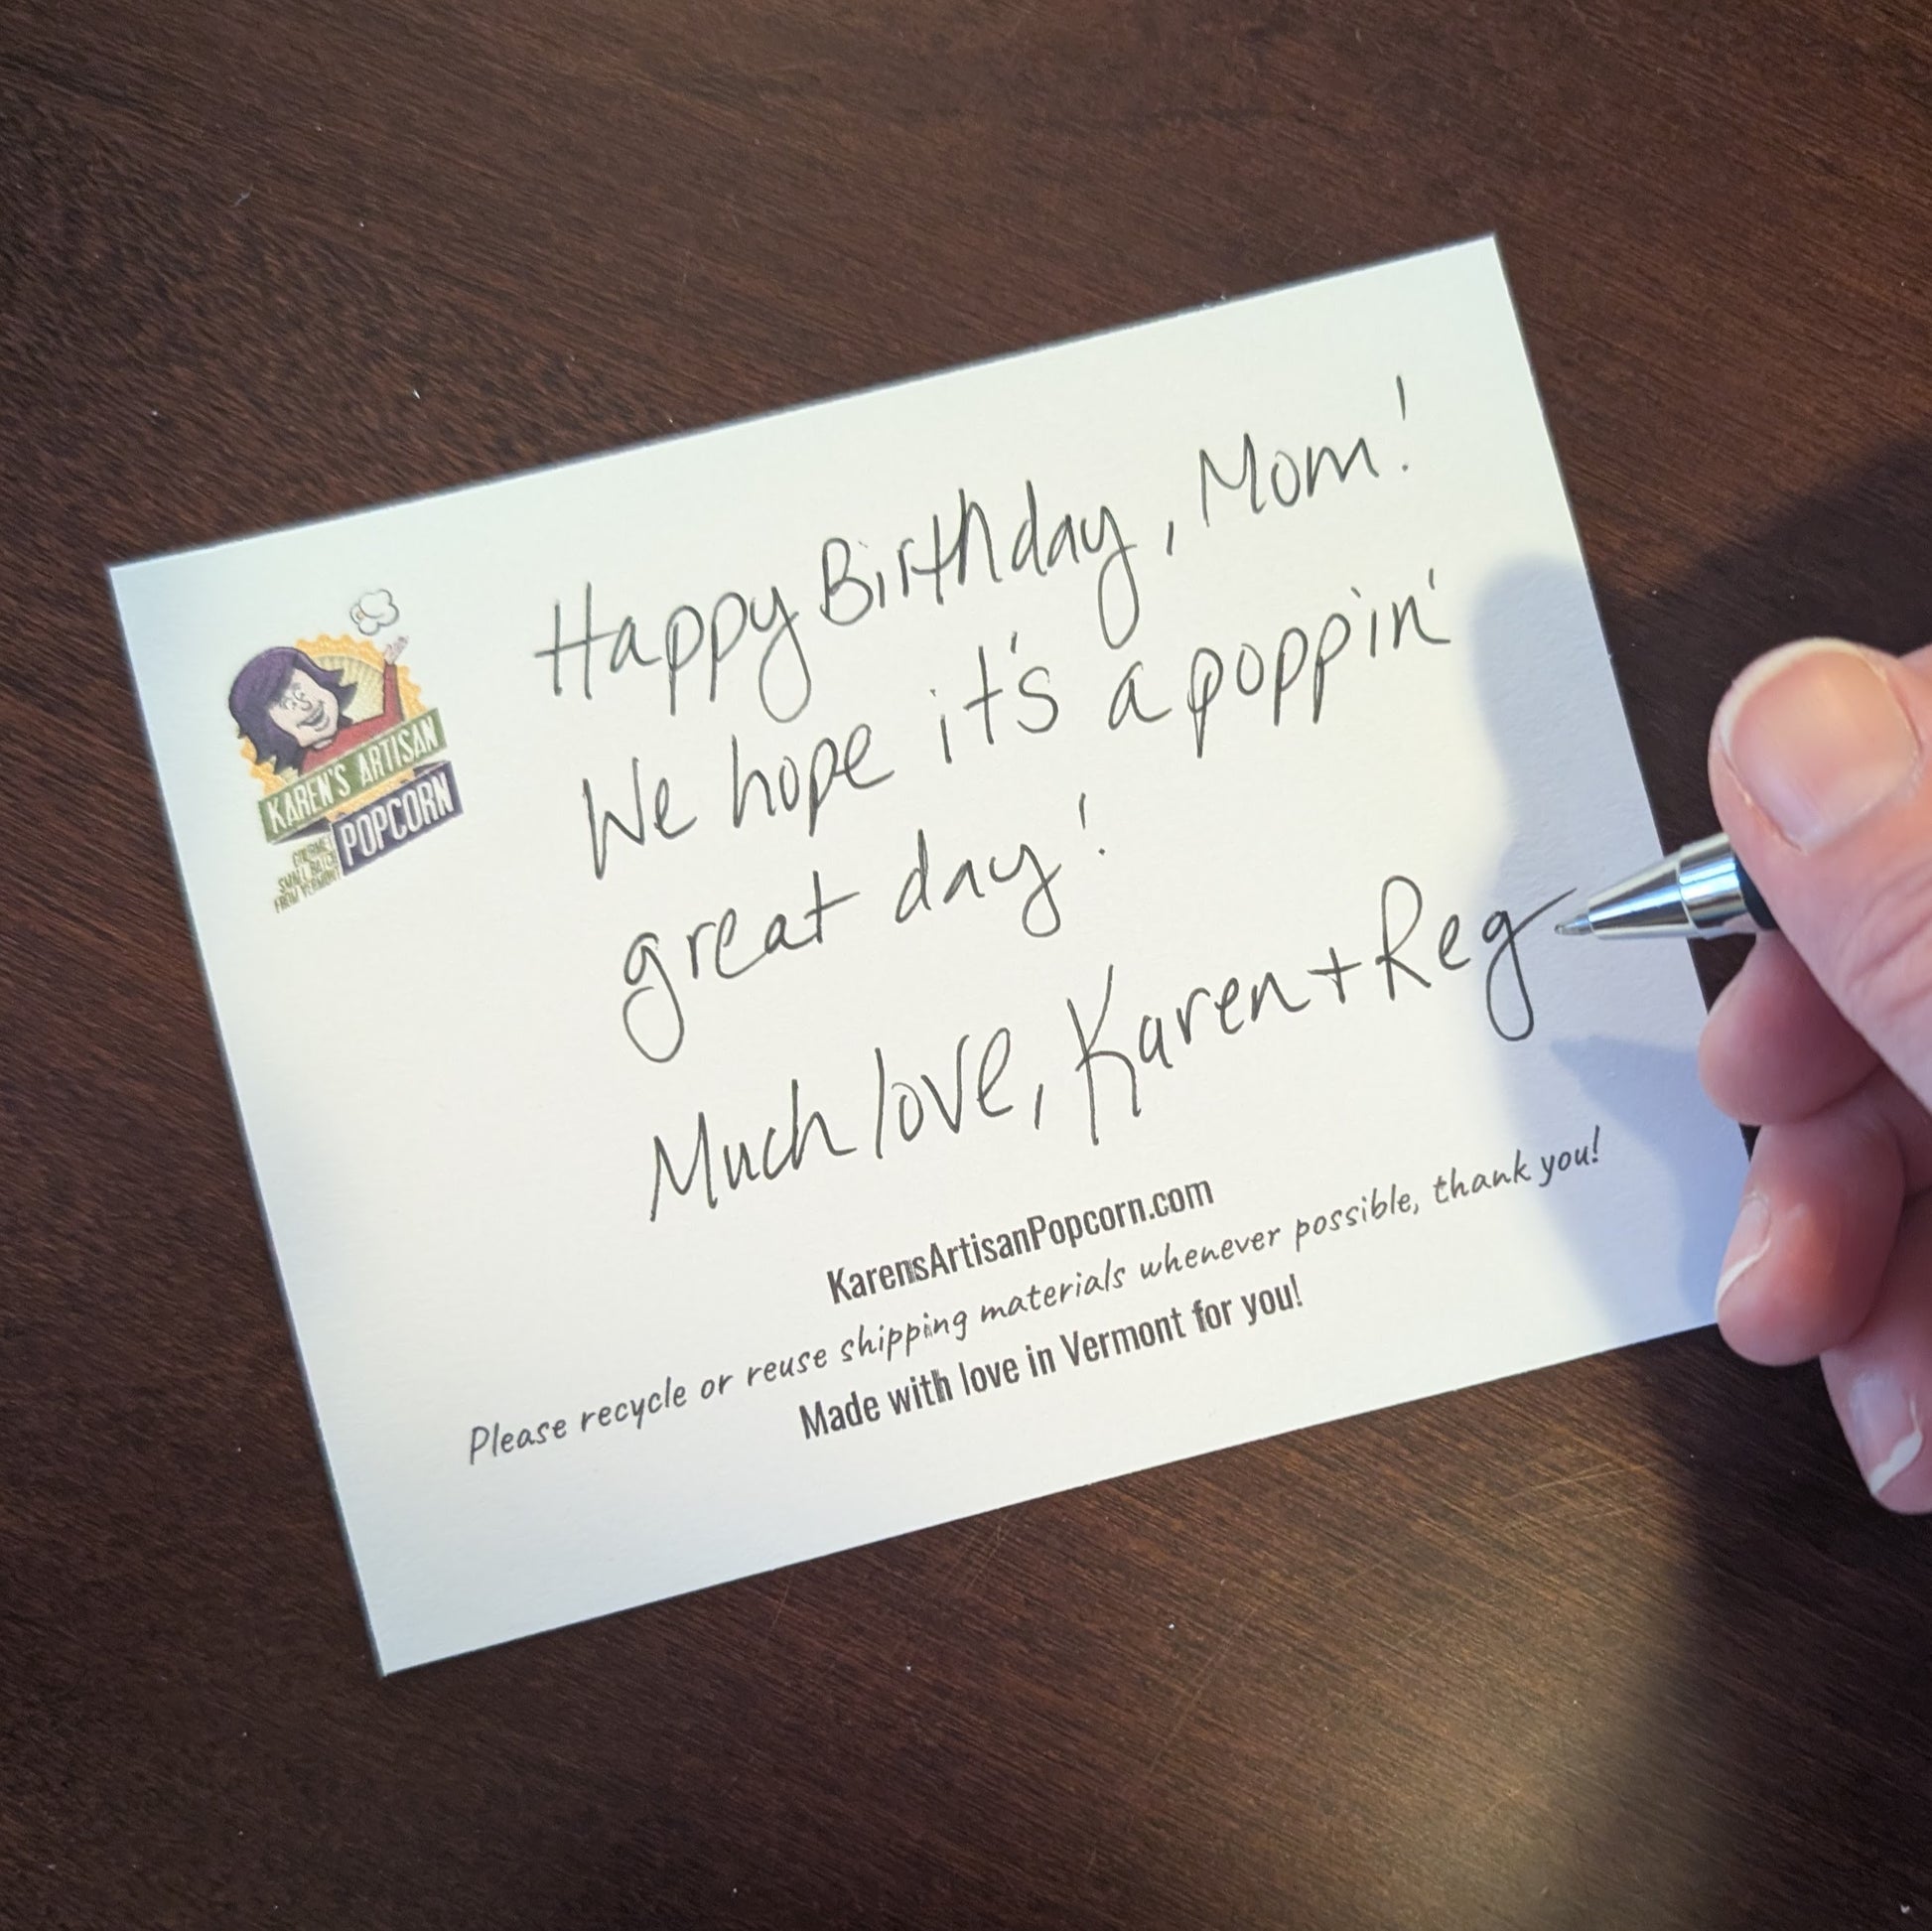 Happy Birthday, Mom!
We hope it's a poppin'
great day!
Much love, Karen + Reg
KAREN'S ARTISAN
POPCORN
GOURMET
SMALL BATCH
FROM VERMONT
KarensArtisanPopcorn.com
Please recycle or reuse shipping materials whenever possible, thank you!
Made with love in Vermont for you!